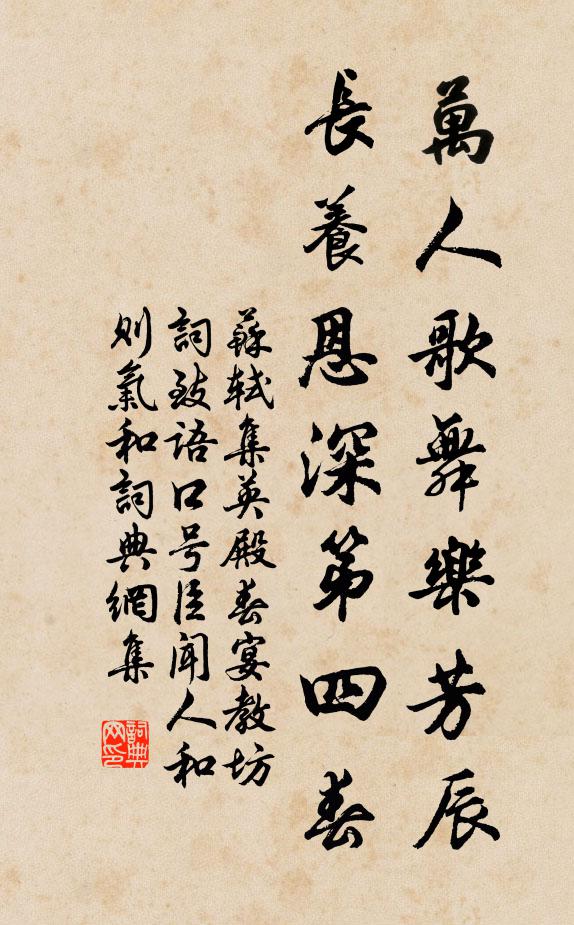 萬人歌舞樂芳辰
長養恩深第四春
蘇軾集英殿春宴教坊
詞致語口号臣闻人和
則氣和詞典網集
詞典
网印